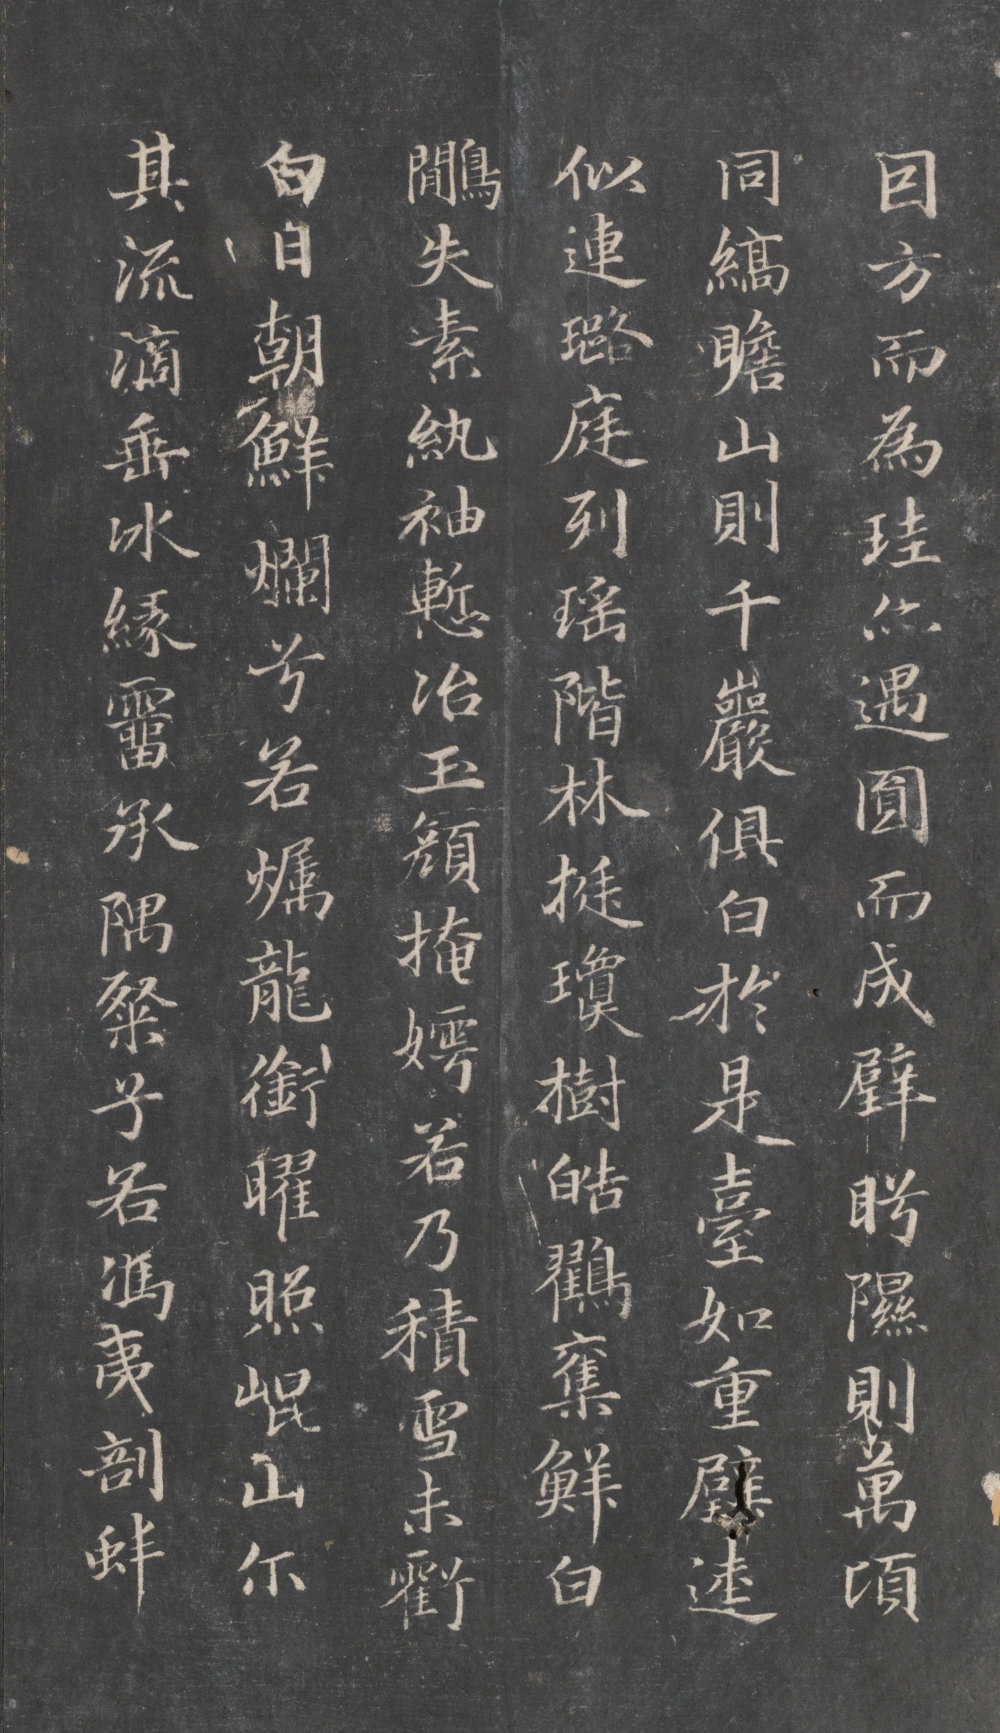 因方而為珪亦遇圓而成璧眄隰則萬頃
同縞瞻山則千巖俱白於是臺如重璧逵
似連璐庭列瑤階林挺瓊樹皓鶴奪鮮白
鷳失素紈袖慙冶玉顏掩嫮若乃積雪未虧
白日朝鮮爛兮若爥龍銜曜照崐山尓
其流滴垂冰緣霤承隅粲兮若馮夷剖蚌